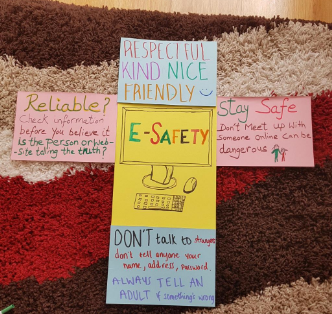 RESPECTFUL
KIND NICE
FRIENDLY
Reliable?
Check information
before you believe it
Is the person or web-
site telling the truth?
E-SAFETY
Stay Safe
Don't Meet up With
someone online Can be
dangerous
DON'T talk to strangers
don't tell anyone your
name, address, password.
ALWAYS TELL AN
ADULT if something's wrong